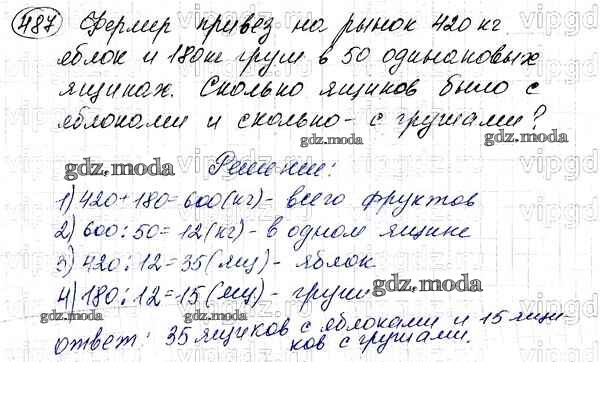 487 Фермер привез на рынок 420 кг
яблок и 180 кг груш в 50 одинаковых
ящиках. Сколько ящиков было с
яблоками и сколько - с грушами?
gdz.moda gdz.moda
gdz.moda Решение:
1) 420 + 180 = 600 (кг) - всего фруктов
2) 600 : 50 = 12 (кг) - в одном ящике
3) 420 : 12 = 35 (ящ) - яблок
gdz.moda
4) 180 : 12 = 15 (ящ) - груш
gdz.moda gdz.moda gdz.moda
ответ: 35 ящиков с яблоками и 15 ящи-
ков с грушами.